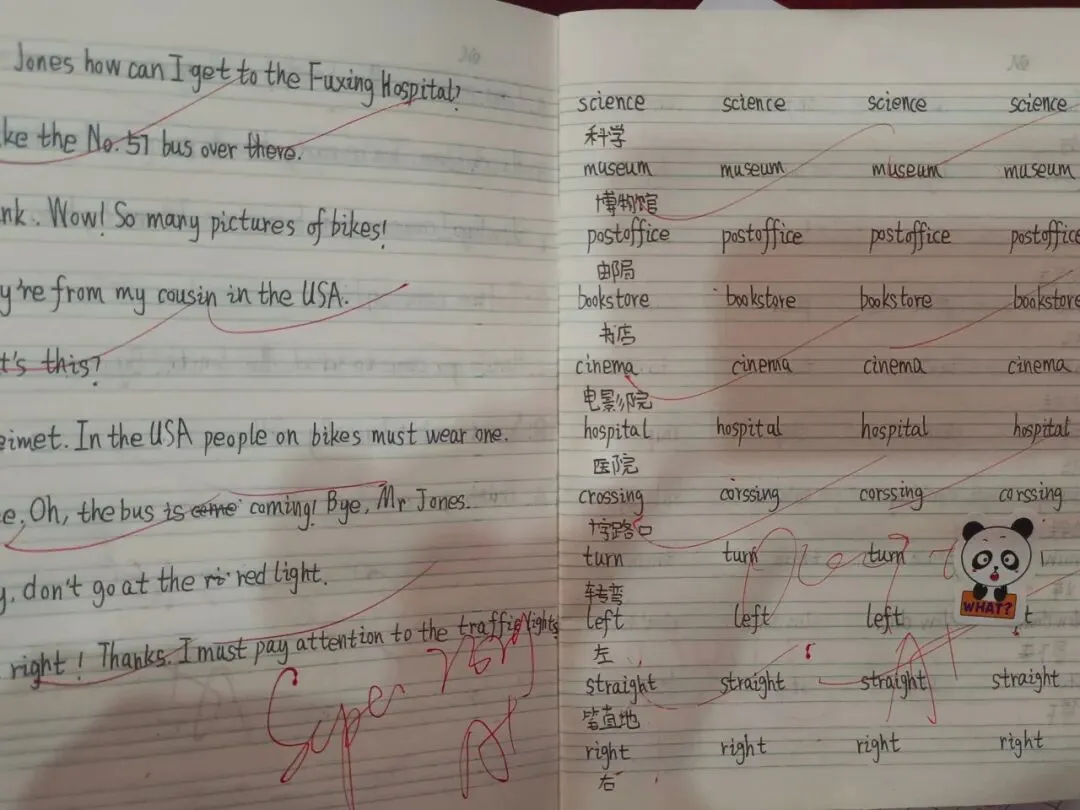 Jones how can I get to the Fuxing Hospital?
ke the No. 57 bus over there.
nk. Wow! So many pictures of bikes!
y're from my cousin in the USA.
t's this?
eimet. In the USA people on bikes must wear one.
e. Oh, the bus is come coming! Bye, Mr Jones.
y. don't go at the ri red light.
right! Thanks. I must pay attention to the traffic lights
Super
A+
science science science science
科学
museum museum museum museum
博物馆
postoffice postoffice postoffice postoffice
邮局
bookstore bookstore bookstore bookstore
书店
cinema cinema cinema cinema
电影院
hospital hospital hospital hospital
医院
crossing corssing corssing corssing
十字路口
turn turn turn
转弯
left left left t
左
straight straight straight straight
笔直地
right right right right
右
WHAT?